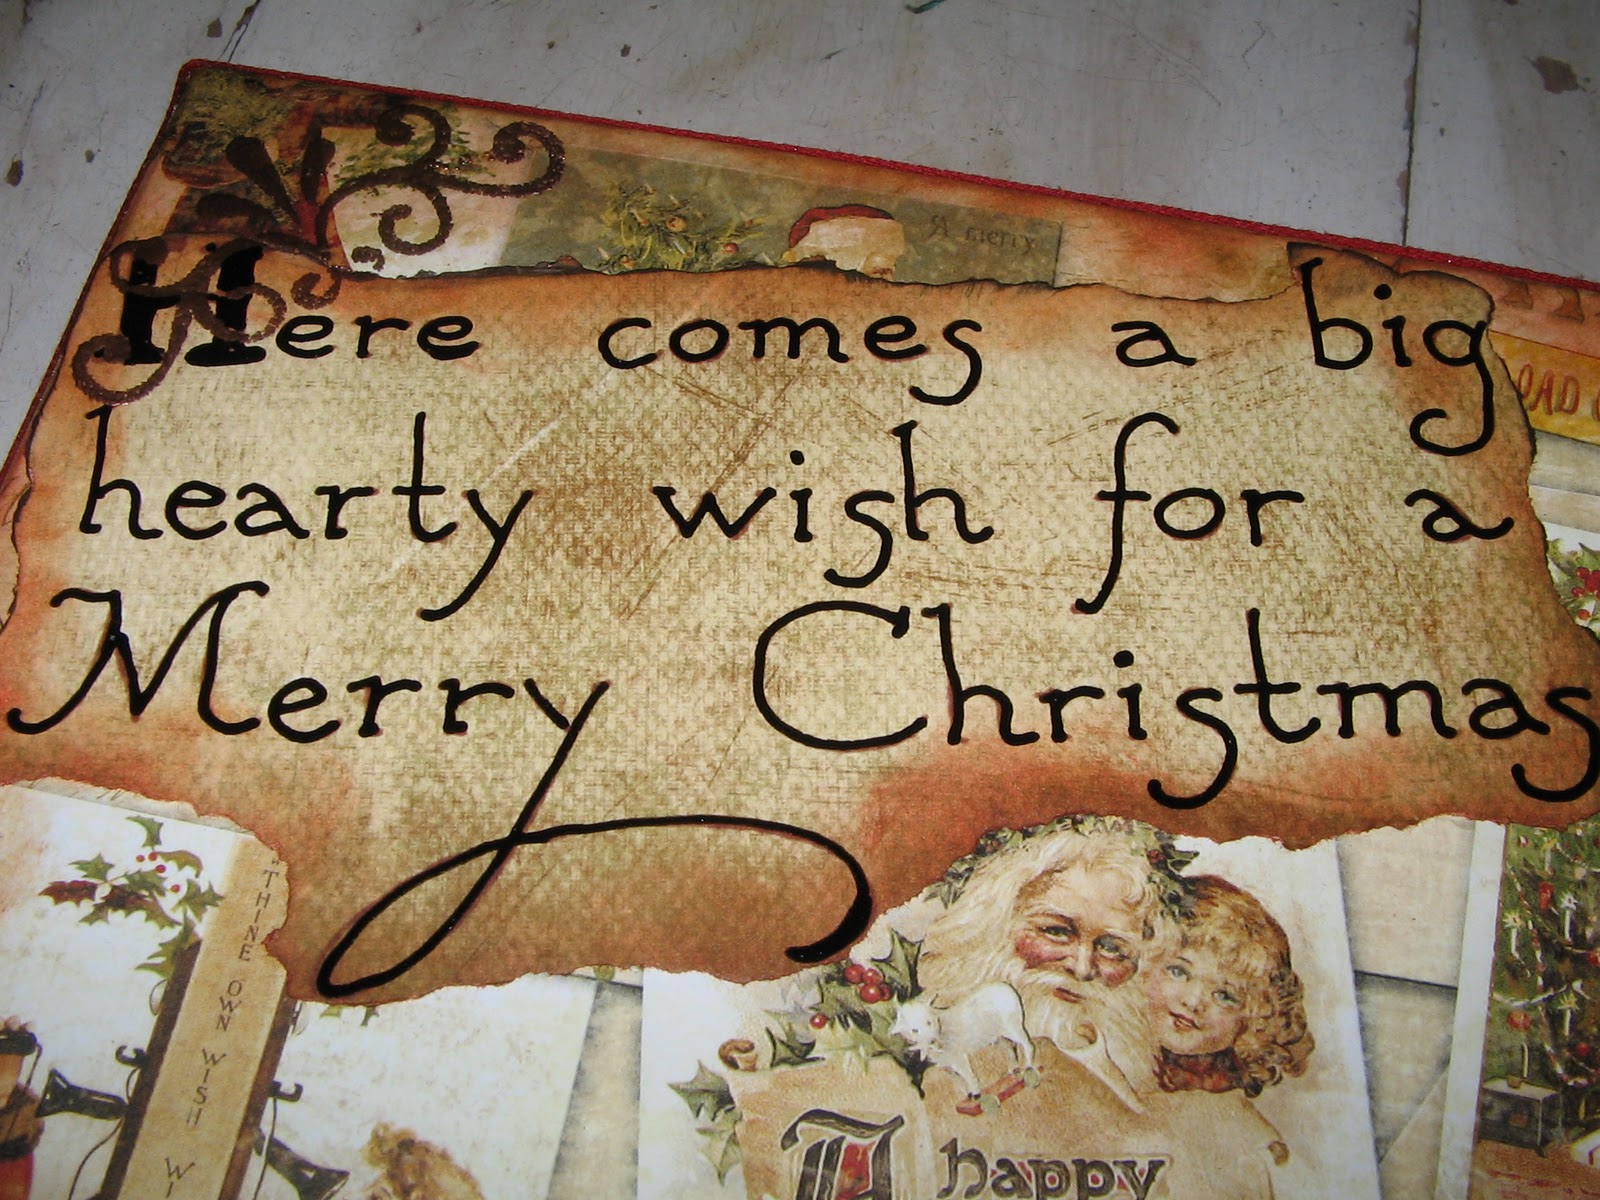 A merry
Here comes a big
hearty wish for a
Merry Christmas
THINE OWN WISH
A happy